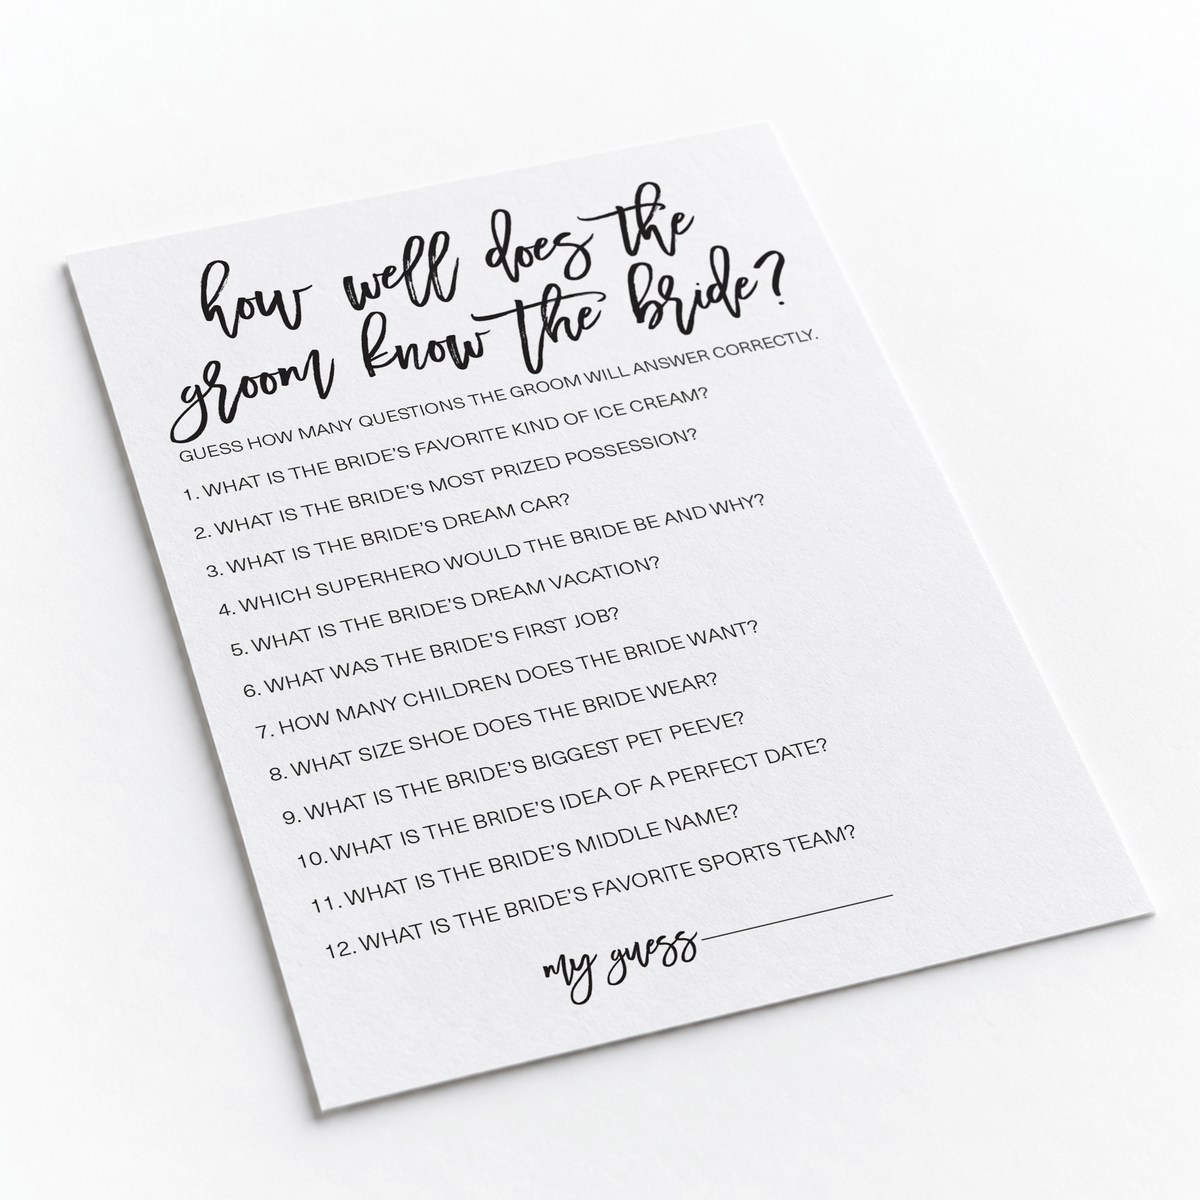 how well does the
groom know the bride?
GUESS HOW MANY QUESTIONS THE GROOM WILL ANSWER CORRECTLY.
1. WHAT IS THE BRIDE'S FAVORITE KIND OF ICE CREAM?
2. WHAT IS THE BRIDE'S MOST PRIZED POSSESSION?
3. WHAT IS THE BRIDE'S DREAM CAR?
4. WHICH SUPERHERO WOULD THE BRIDE BE AND WHY?
5. WHAT IS THE BRIDE'S DREAM VACATION?
6. WHAT WAS THE BRIDE'S FIRST JOB?
7. HOW MANY CHILDREN DOES THE BRIDE WANT?
8. WHAT SIZE SHOE DOES THE BRIDE WEAR?
9. WHAT IS THE BRIDE'S BIGGEST PET PEEVE?
10. WHAT IS THE BRIDE'S IDEA OF A PERFECT DATE?
11. WHAT IS THE BRIDE'S MIDDLE NAME?
12. WHAT IS THE BRIDE'S FAVORITE SPORTS TEAM?
my guess